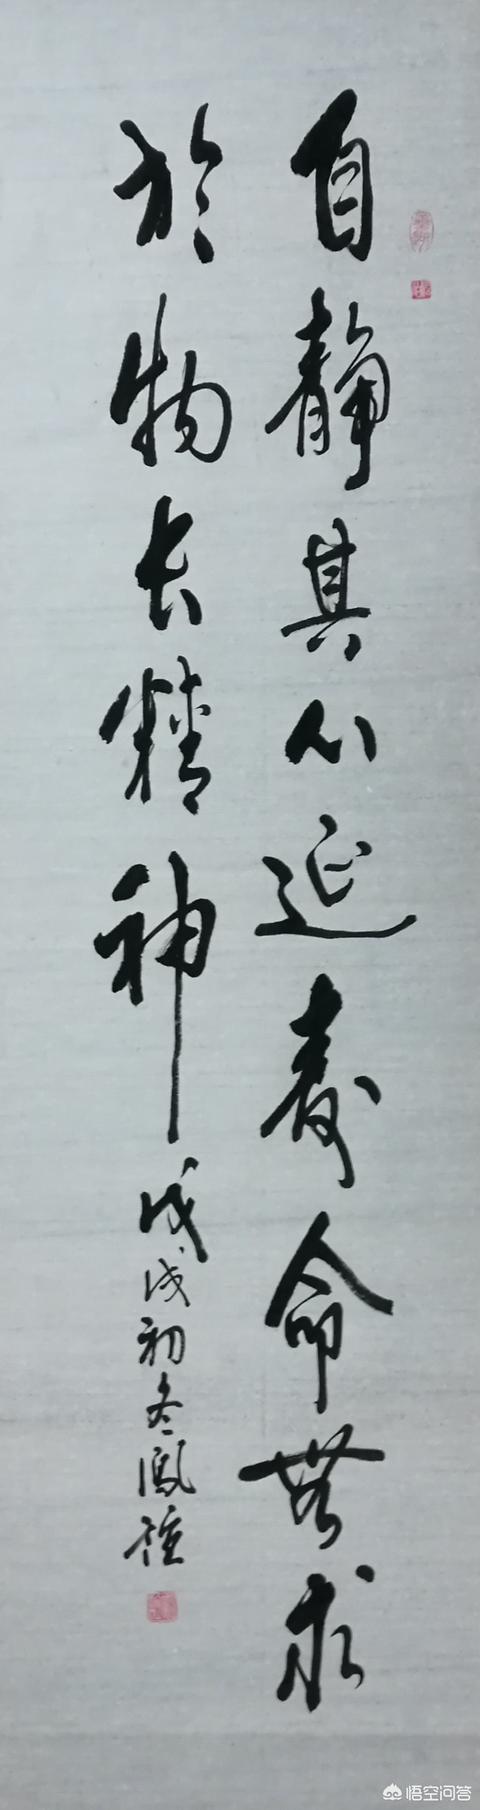 自静其心延寿命无求
於物长精神
戊戌初冬凤
悟空问答